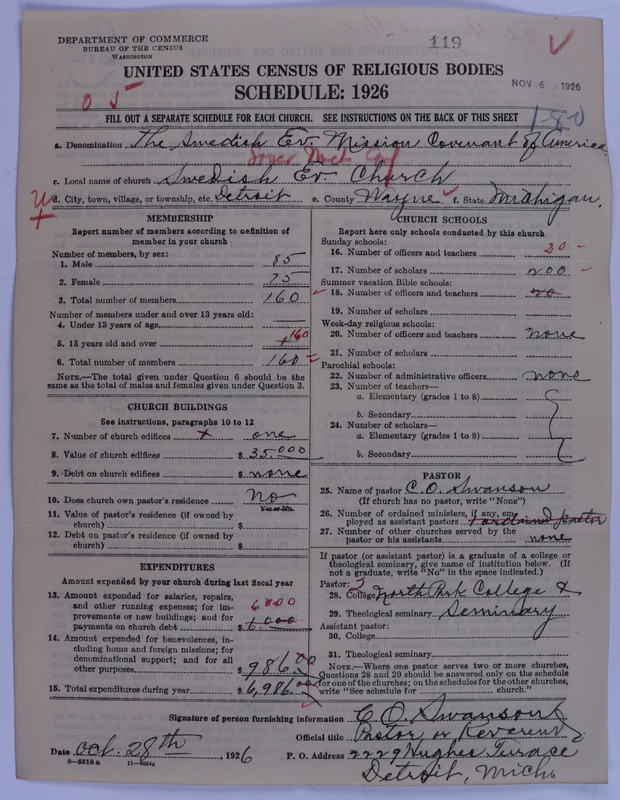 DEPARTMENT OF COMMERCE
BUREAU OF THE CENSUS
WASHINGTON
119
UNITED STATES CENSUS OF RELIGIOUS BODIES
SCHEDULE: 1926
NOV 6 1926
0 5
1-80
FILL OUT A SEPARATE SCHEDULE FOR EACH CHURCH. SEE INSTRUCTIONS ON THE BACK OF THIS SHEET
a. Denomination The Swedish Ev. Mission Covenant of America
c. Local name of church Swedish Ev. Church
d. City, town, village, or township, etc. Detroit e. County Wayne f. State Michigan.
MEMBERSHIP
Report number of members according to definition of
member in your church
Number of members, by sex:
1. Male 85
2. Female 75
3. Total number of members 160
Number of members under and over 13 years old:
4. Under 13 years of age
5. 13 years old and over 160
6. Total number of members 160
NOTE.—The total given under Question 6 should be
same as the total of males and females given under Question 3.
CHURCH BUILDINGS
See instructions, paragraphs 10 to 12
7. Number of church edifices one
8. Value of church edifices $ 35,000
9. Debt on church edifices $ none
10. Does church own pastor's residence No
Yes or No.
11. Value of pastor's residence (if owned by
church) $
12. Debt on pastor's residence (if owned by
church) $
EXPENDITURES
Amount expended by your church during last fiscal year
13. Amount expended for salaries, repairs,
and other running expenses; for im-
provements or new buildings; and for
payments on church debt $ 6,000
6000
14. Amount expended for benevolences, in-
cluding home and foreign missions; for
denominational support; and for all
other purposes $ 986.00
15. Total expenditures during year $ 6,986.00
CHURCH SCHOOLS
Report here only schools conducted by this church
Sunday schools:
16. Number of officers and teachers 20
17. Number of scholars 200
Summer vacation Bible schools:
18. Number of officers and teachers 20
19. Number of scholars
Week-day religious schools:
20. Number of officers and teachers none
21. Number of scholars
Parochial schools:
22. Number of administrative officers none
23. Number of teachers—
a. Elementary (grades 1 to 8)
b. Secondary
24. Number of scholars—
a. Elementary (grades 1 to 8)
b. Secondary
PASTOR
25. Name of pastor C. O. Swanson
(If church has no pastor, write "None")
26. Number of ordained ministers, if any, em-
ployed as assistant pastors 1 ordained pastor
27. Number of other churches served by the
pastor or his assistants none
If pastor (or assistant pastor) is a graduate of a college or
theological seminary, give name of institution below. (If
not a graduate, write "No" in the space indicated.)
Pastor:
28. College North Park College &
29. Theological seminary Seminary
Assistant pastor:
30. College
31. Theological seminary
NOTE.—Where one pastor serves two or more churches,
Questions 28 and 29 should be answered only on the schedule
for one of the churches; on the schedules for the other churches,
write "See schedule for church."
Signature of person furnishing information C. O. Swanson
Official title Pastor or Reverent
Date Oct. 28th, 1926 P. O. Address 2229 Hughes Terrace
Detroit, Mich.
8—5518a